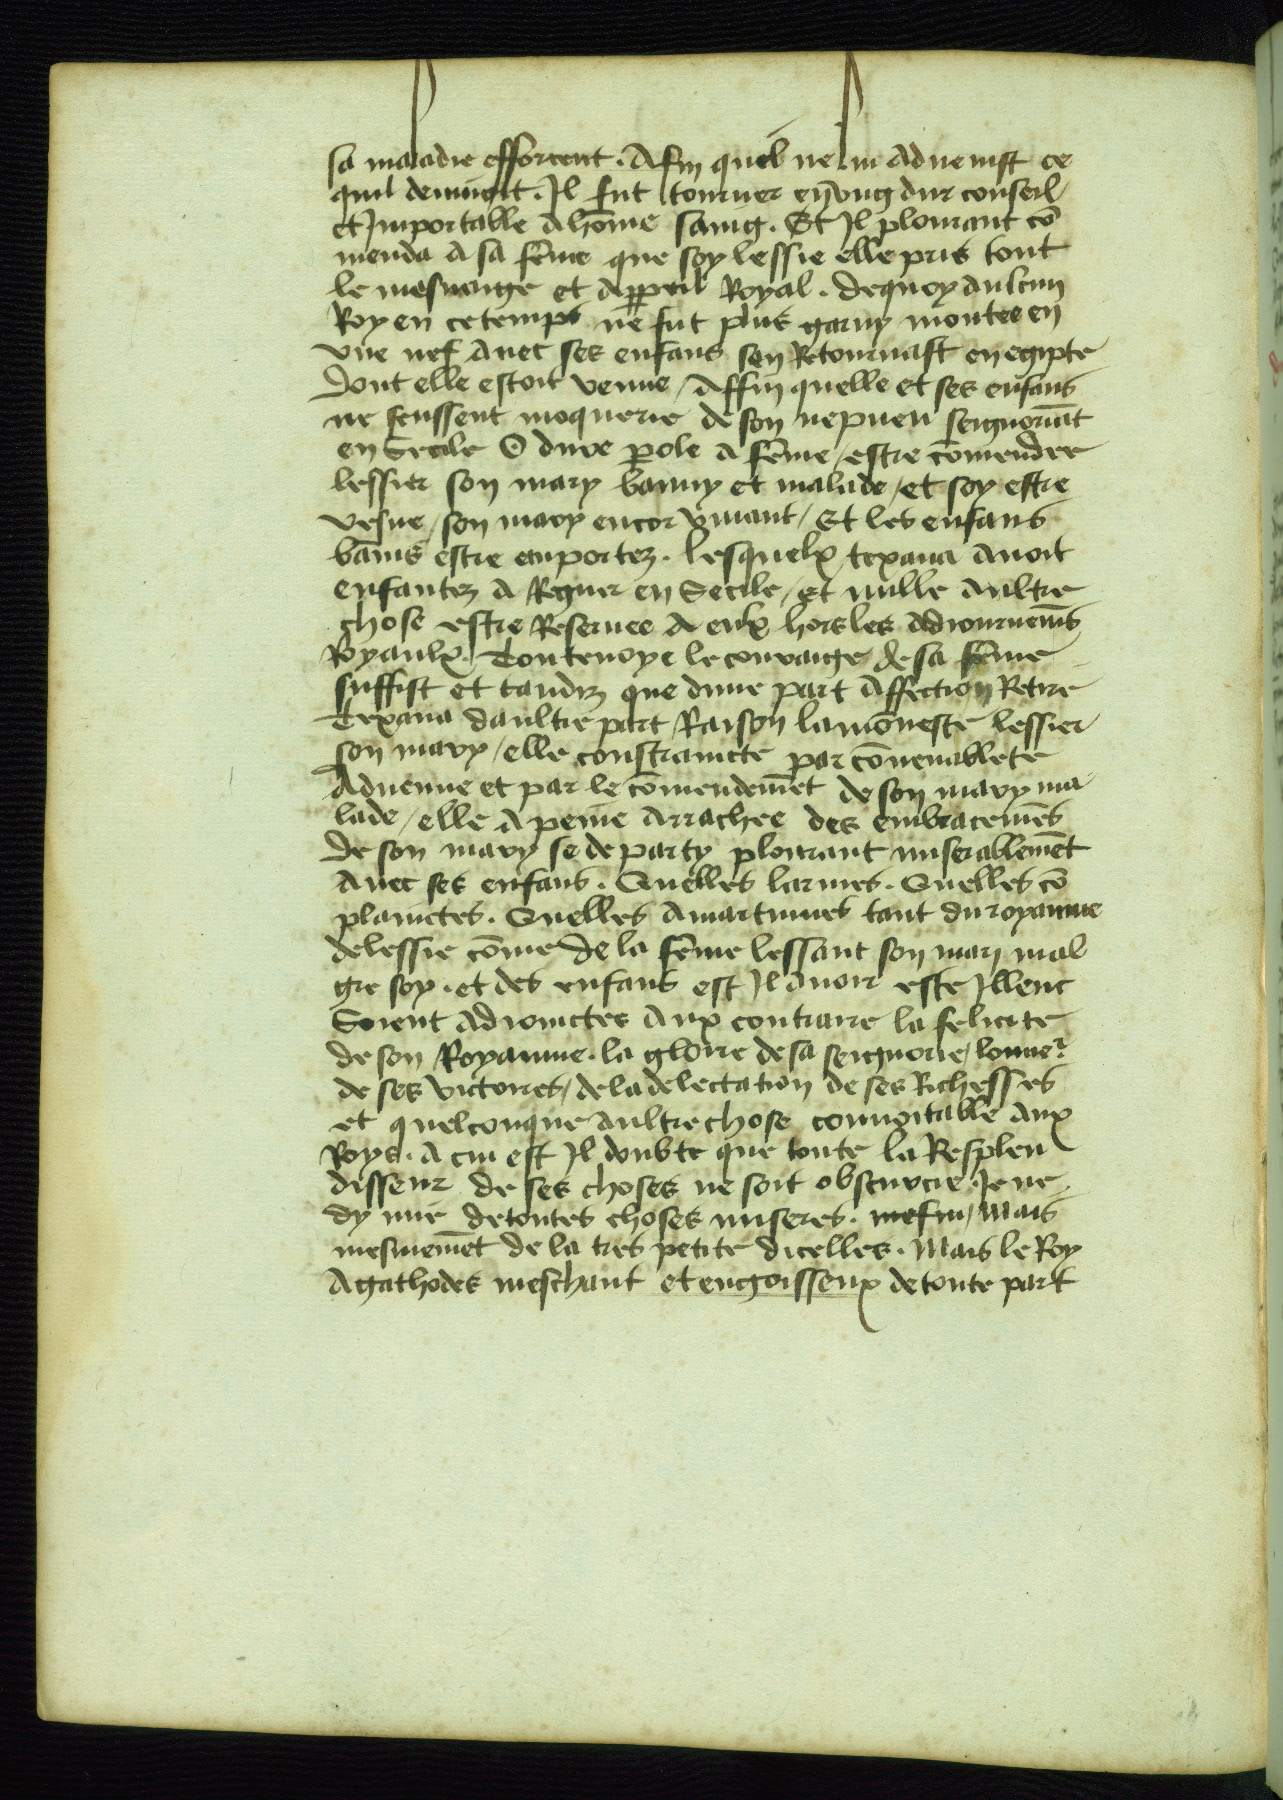 sa maladie efforcent. Afin quel ne lui advenist ce
quil demingit. Il fut tourner en ung dur conseil
et Importable a hōme saing. Et Il plourant cō
menda a sa fēme que soy lessie elle pris tout
le mesnaige et apareil Royal. de quoy aulcun
Roy en ce temps ne fut plus garny montee en
une nef avec ses enfans sen Retournast en egipte
dont elle estoit venue / Affin quelle et ses enfans
ne feussent moquerie de son nepueu seignoriāt
en Secile O dure pole a fēme / estre cōmendee
lessier son mary banny et malade / et soy estre
vesue / son mary encor vivant / Et les enfans
bānis estre emportez. lesquelx texana avoit
enfantez a Regner en Secile / et nulle aultre
chose estre Reservee a eulx hors les adiournemēs
Royaulx. Toutevoye le couraige de sa fēme
suffist et tandiz que dune part affection Retire
Texana daultre part Raison lamōneste lessier
son mary / elle constraincte par cōvenablete
advenue et par le cōmendemēt de son mary ma
lade / elle a peine arrachee des embracemēs
de son mary se de party plourant miserablemēt
avec ses enfans. Quelles larmes. Quelles cō
plainctes. Quelles amartumes tant du royaume
delessie cōme de la fēme lessant son mari mal
gre soy. et des enfans est Il avoir este Illenc
Soient adioinctes aux contraire la felicite
de son Royaume. la gloire de sa seignorie / lonner
de ses victoires / de la delectation de ses Richesses
et quelconque aultre chose convoitable aux
Roys. A cui est Il doubte que toute la Resplen
disseur de ses choses ne soit obscurcie Je ne
dy mie de toutes choses miseres. mefin / mais
mesmemēt de la tres petite dicelles. Mais le Roy
Agathodes meschant et engoisseux de toute part